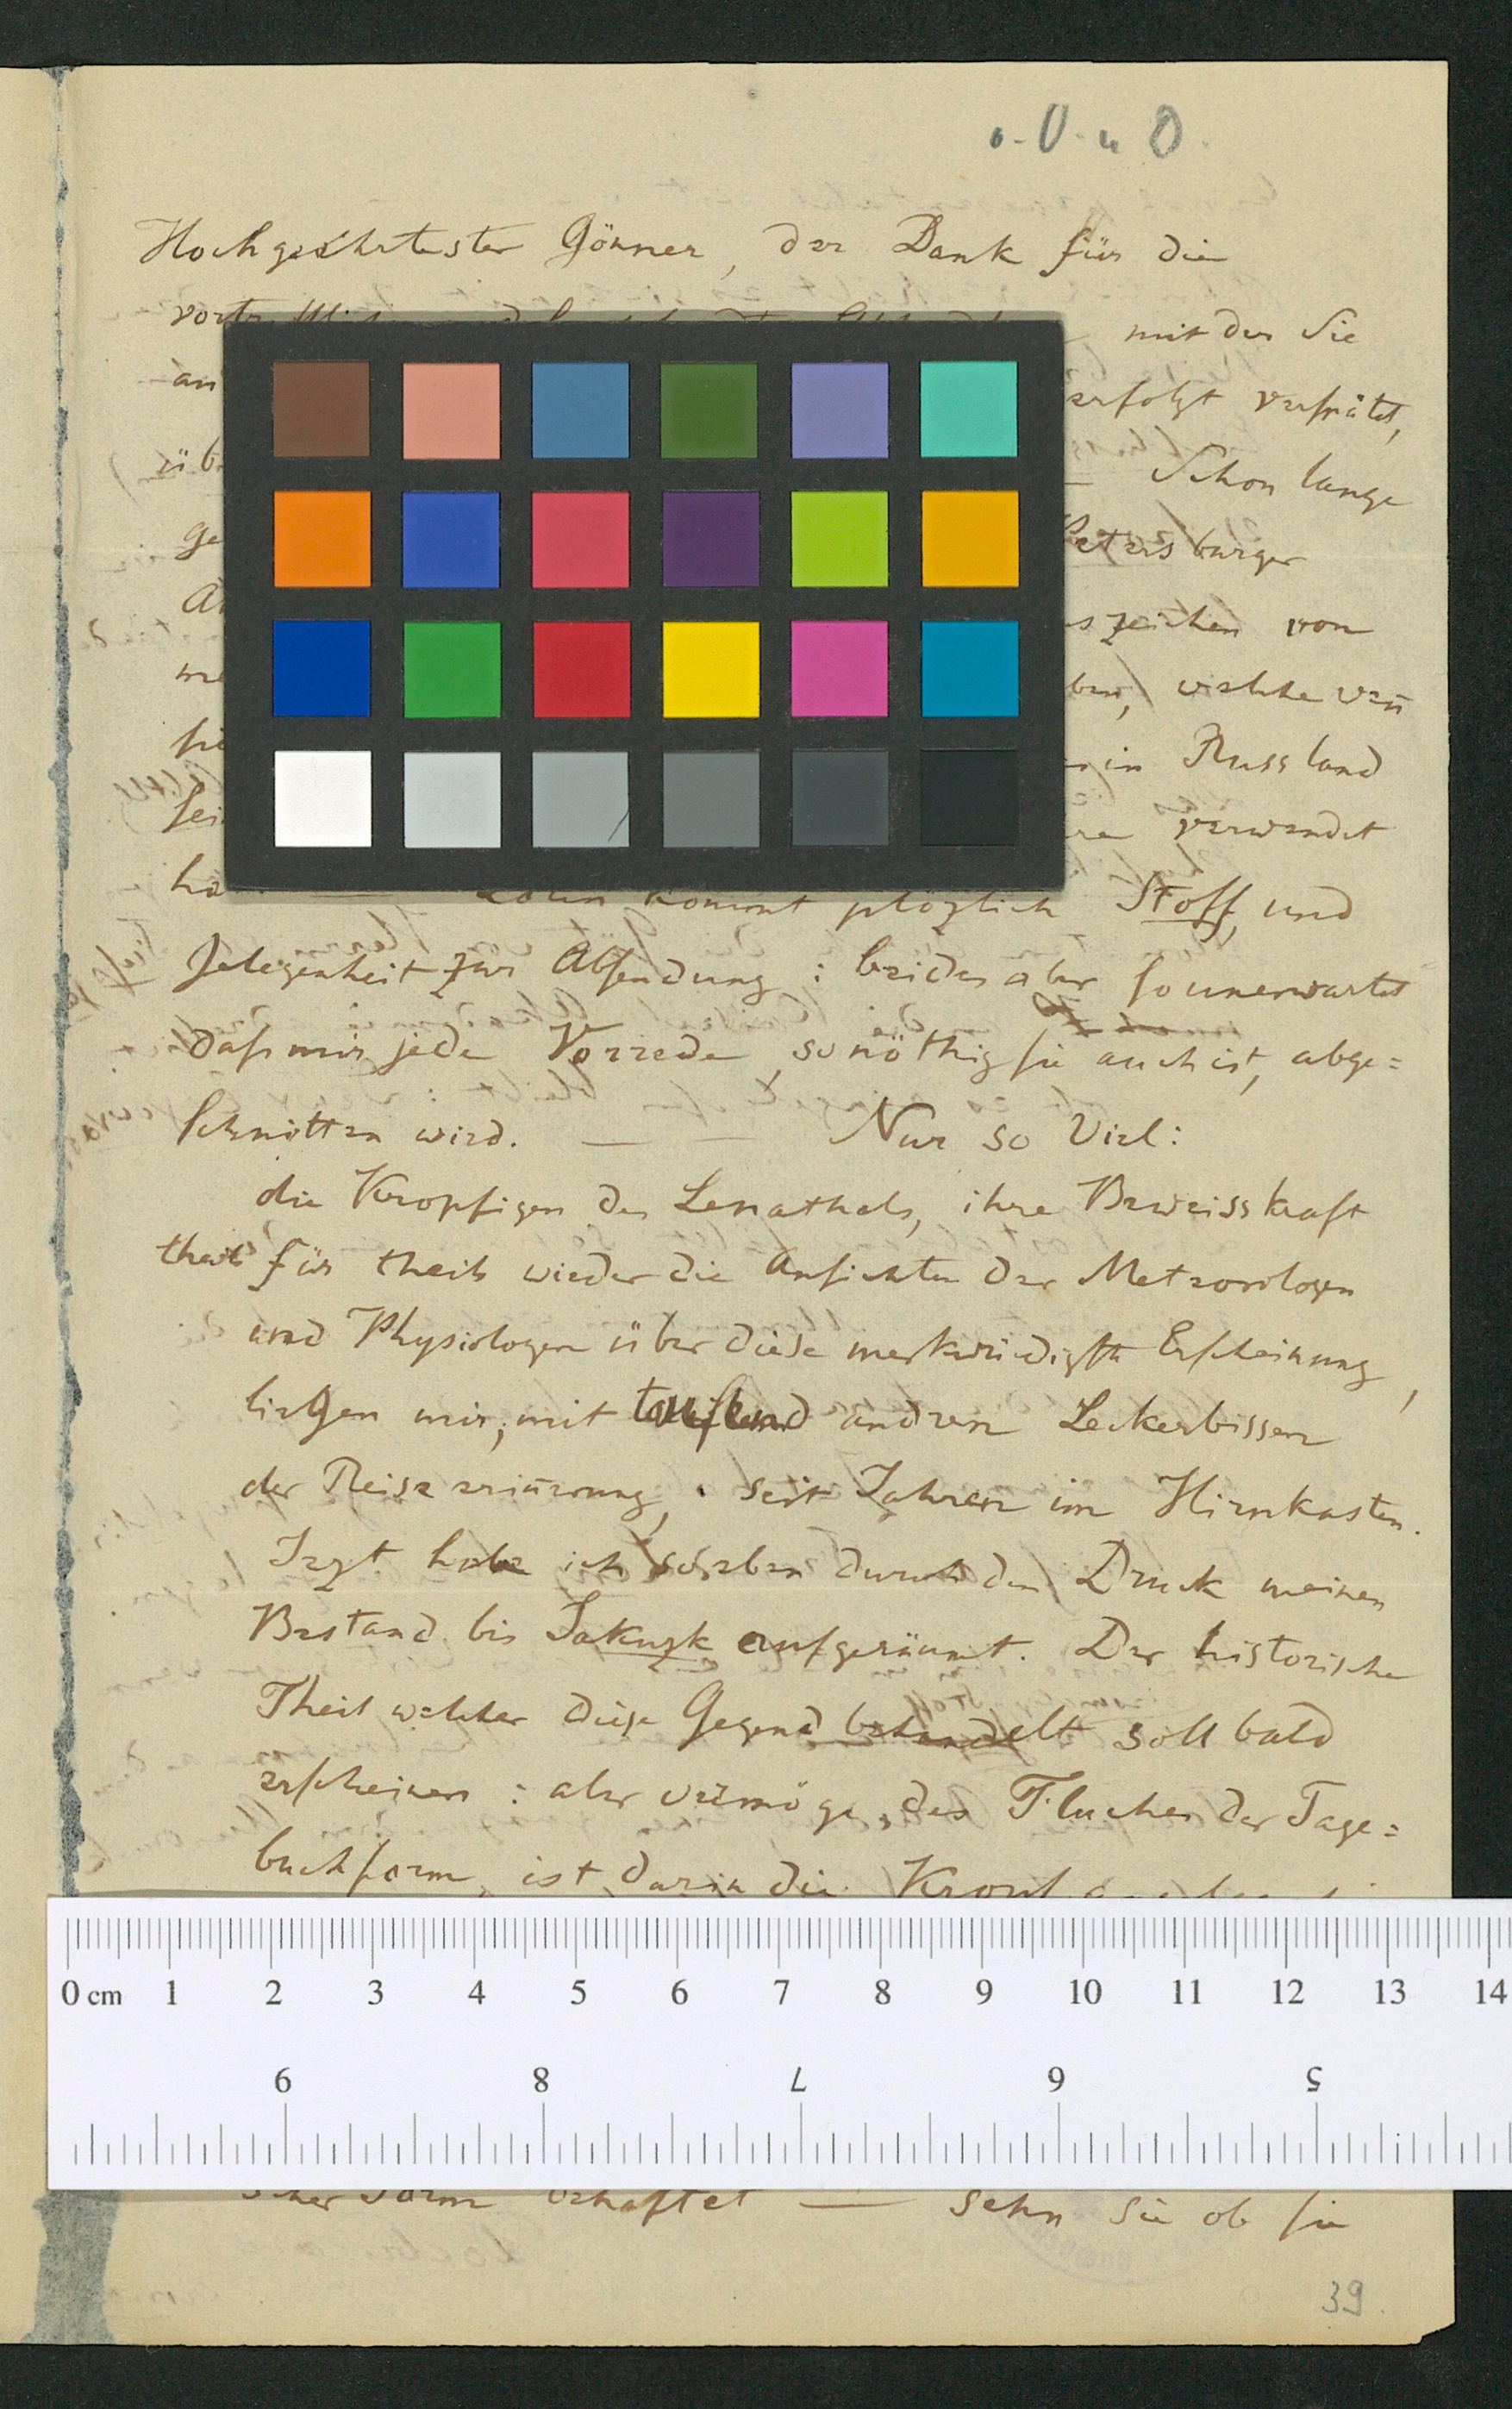 o. O. u D.
Hochgeehrtester Gönner, der Dank für die
mit der Sie
an erfolgt verspätet,
üb Schon lange
ge Petersburger
szeichen von
ben, welche
in Russland
sei verwendet
ha kommt plözlich Stoff, und
Gelegenheit zur Absendung: beides aber so unerwartet
daß mir jede Vorrede, so nöthig sie auch ist, abge=
schnitten wird. — — Nur so Viel:
die Kropfigen des Lenathals, ihre Beweisskraft
theils für theils wieder die Ansichten der Meteorologen
und Physiologen über diese merkwürdigste Erscheinung,
liegen mir, mit tausend andren Leckerbissen
der Reiseerinerung, seit Jahren im Hirnkasten.
Jezt habe ich soeben durch den Druck meinen
Bestand bis Jakuzk aufgeräumt. Der historische
Theil welcher diese Gegend behandelt soll bald
erscheinen: aber vermöge, des Fluches der Tage=
buchform, ist darin die
0 cm 1 2 3 4 5 6 7 8 9 10 11 12 13 14
9 8 7 6 5
scher Form behaftet — Sehn Sie ob sie
39